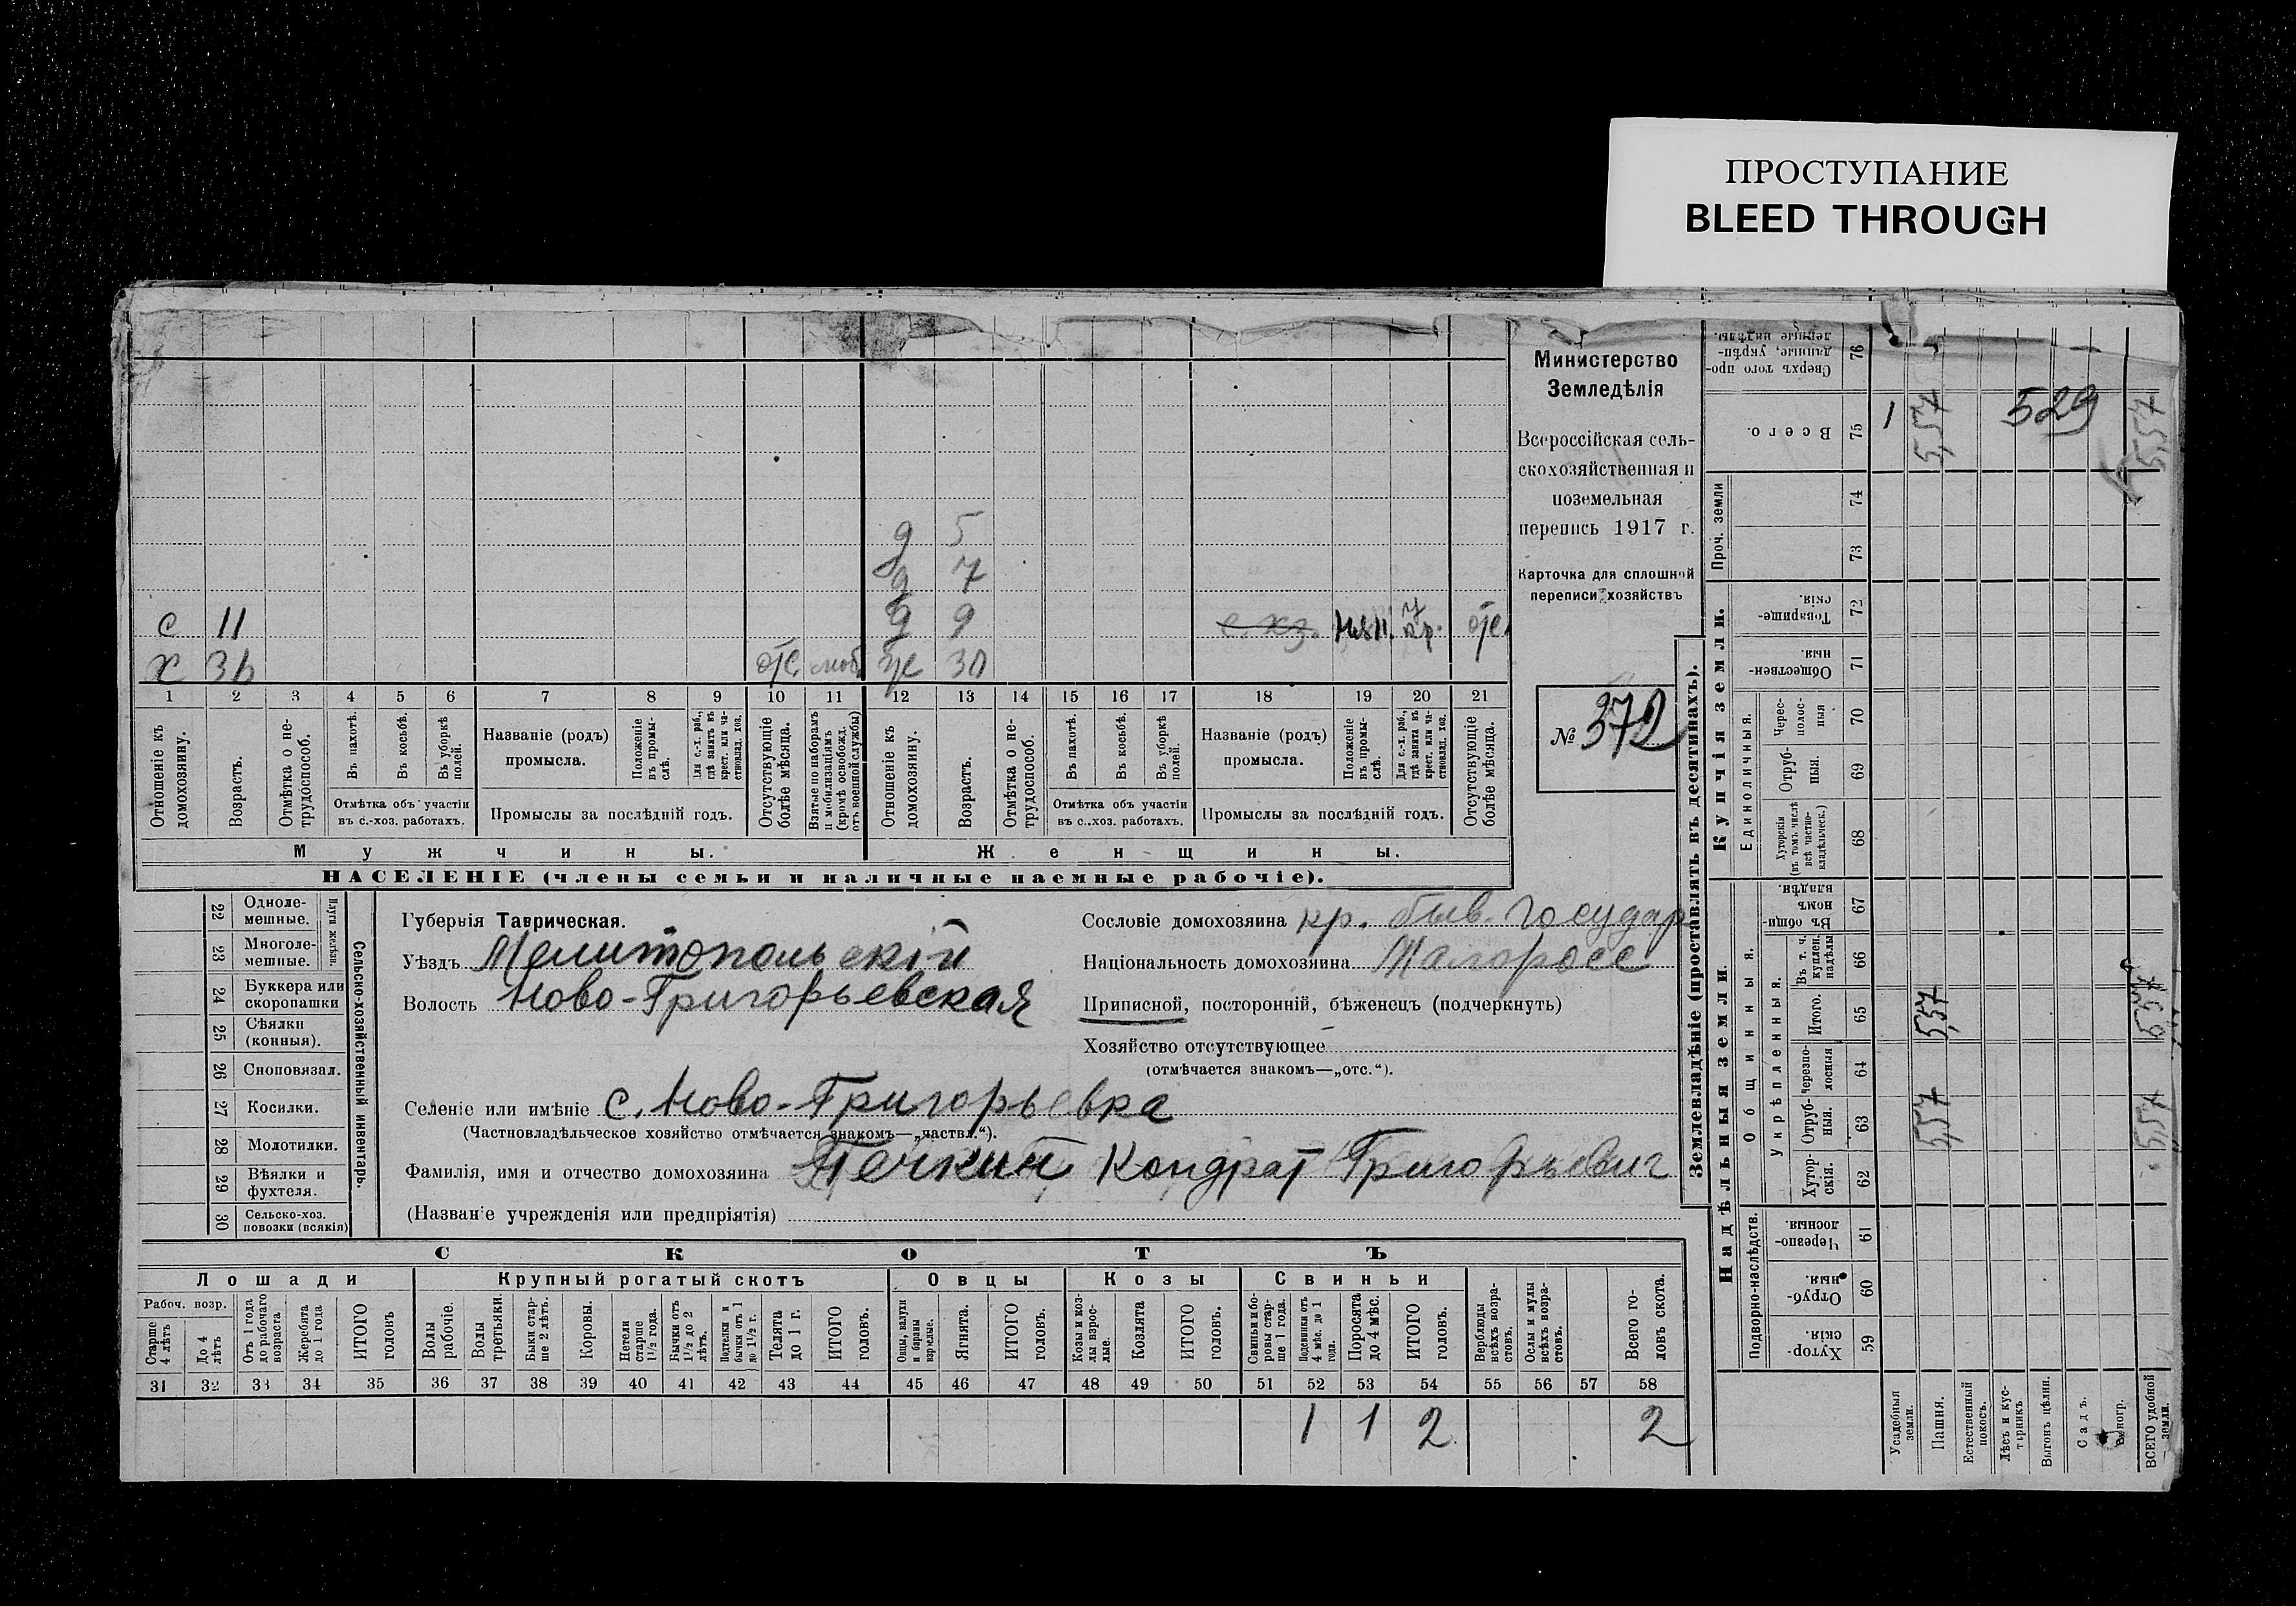 ПРОСТУПАНИЕ
BLEED THROUGH
Министерство
Земледѣлія
Всероссійская сель-
скохозяйственная и
поземельная
перепись 1917 г.
Карточка для сплошной
переписи хозяйствъ
№ 372
д 5
д 7
с 11 д 9 с. хз. кр. отс.
х 36 отс. моб. же 30
1 2 3 4 5 6 7 8 9 10 11 12 13 14 15 16 17 18 19 20 21
Отношеніе къ домохозяину.
Возрастъ.
Отмѣтка о не-трудоспособ.
Въ пахотѣ.
Въ косьбѣ.
Въ уборкѣ полей.
Отмѣтка объ участіи
въ с.-хоз. работахъ.
Названіе (родъ)
промысла.
Положеніе въ промы-слѣ.
Для с.-х. раб., гдѣ занятъ въ крест. или ча-стновлад. хоз.
Промыслы за послѣдній годъ.
Отсутствующіе болѣе мѣсяца.
Взятые по наборамъ и мобилизаціямъ (кромѣ освобожд. отъ военной службы)
Отношеніе къ домохозяину.
Возрастъ.
Отмѣтка о не-трудоспособ.
Въ пахотѣ.
Въ косьбѣ.
Въ уборкѣ полей.
Отмѣтка объ участіи
въ с.-хоз. работахъ.
Названіе (родъ)
промысла.
Положеніе въ промы-слѣ.
Для с.-х. раб., гдѣ занята въ крест. или ча-стновлад. хоз.
Промыслы за послѣдній годъ.
Отсутствующіе болѣе мѣсяца.
Мужчины. Женщины.
НАСЕЛЕНІЕ (члены семьи и наличные наемные рабочіе).
22 Одноле-мешные.
23 Многоле-мешные.
Плуги желѣзн.
24 Буккера или скоропашки
25 Сѣялки (конныя).
26 Сноповязал.
27 Косилки.
28 Молотилки.
29 Вѣялки и фухтеля.
30 Сельско-хоз. повозки (всякія)
Сельско-хозяйственный инвентарь.
Губернія Таврическая.
Уѣздъ Мелитопольскій
Волость Ново-Григорьевская
Селеніе или имѣніе с. Ново-Григорьевка
(Частновладѣльческое хозяйство отмѣчается знакомъ—„частвл.“).
Фамилія, имя и отчество домохозяина Течкин Кондрат Григорьевич
(Названіе учрежденія или предпріятія)
Сословіе домохозяина кр. быв. государ
Національность домохозяина Малоросс
Приписной, посторонній, бѣженецъ (подчеркнуть)
Хозяйство отсутствующее
(отмѣчается знакомъ—„отс.“).
СКОТЪ
Лошади Крупный рогатый скотъ Овцы Козы Свиньи
Рабоч. возр.
Старше 4 лѣтъ
До 4 лѣтъ
Отъ 1 года до рабочаго возраста
Жеребята до 1 года
ИТОГО головъ
Волы рабочіе.
Волы третьяки.
Быки стар-ше 2 лѣтъ.
Коровы.
Нетели старше 1½ года.
Бычки отъ 1½ до 2 лѣтъ.
Подтелки и бычки отъ 1 до 1½ г.
Телята до 1 г.
ИТОГО головъ.
Овцы, валухи и бараны взрослые.
Ягнята.
ИТОГО головъ.
Козы и коз-лы взрос-лые.
Козлята
ИТОГО головъ.
Свиньи и бо-ровы стар-ше 1 года.
Подсвинки отъ 4 мѣс. до 1 года.
Поросята до 4 мѣс.
ИТОГО головъ.
Верблюды всѣхъ возра-стовъ.
Ослы и мулы всѣхъ возра-стовъ.
Всего го-ловъ скота.
31 32 33 34 35 36 37 38 39 40 41 42 43 44 45 46 47 48 49 50 51 52 53 54 55 56 57 58
1 1 2 2
Землевладѣніе (проставлять въ десятинахъ).
Надѣльныя земли. Купчія земли.
Подворно-наслѣдств.
Общинныя.
Укрѣпленныя.
Единоличныя.
Проч. земли
Сверхъ того про-данные, укрѣп-ленные надѣлы. 76
Всего. 75 1 5,57 529 5,57
74
73
Товарище-скія. 72
Обществен-ныя. 71
Черес-полос-ныя 70
Отруб-ныя. 69
Хуторскія (въ томъ числѣ всѣ частно-владѣльческ.) 68
Въ общин-номъ владѣн. 67
Въ т. ч. куплен. надѣлы 66
Итого. 65 5,57 5,57
Черезпо-лосныя 64
Отруб-ныя. 63 5,57 5,57
Хутор-скія. 62
Черезпо-лосныя. 61
Отруб-ныя. 60
Хутор-скія. 59
Усадебныя земли.
Пашня.
Естественный покосъ.
Лѣсъ и кус-тарникъ
Выгонъ цѣлин.
Садъ.
Виногр.
ВСЕГО удобной земли.